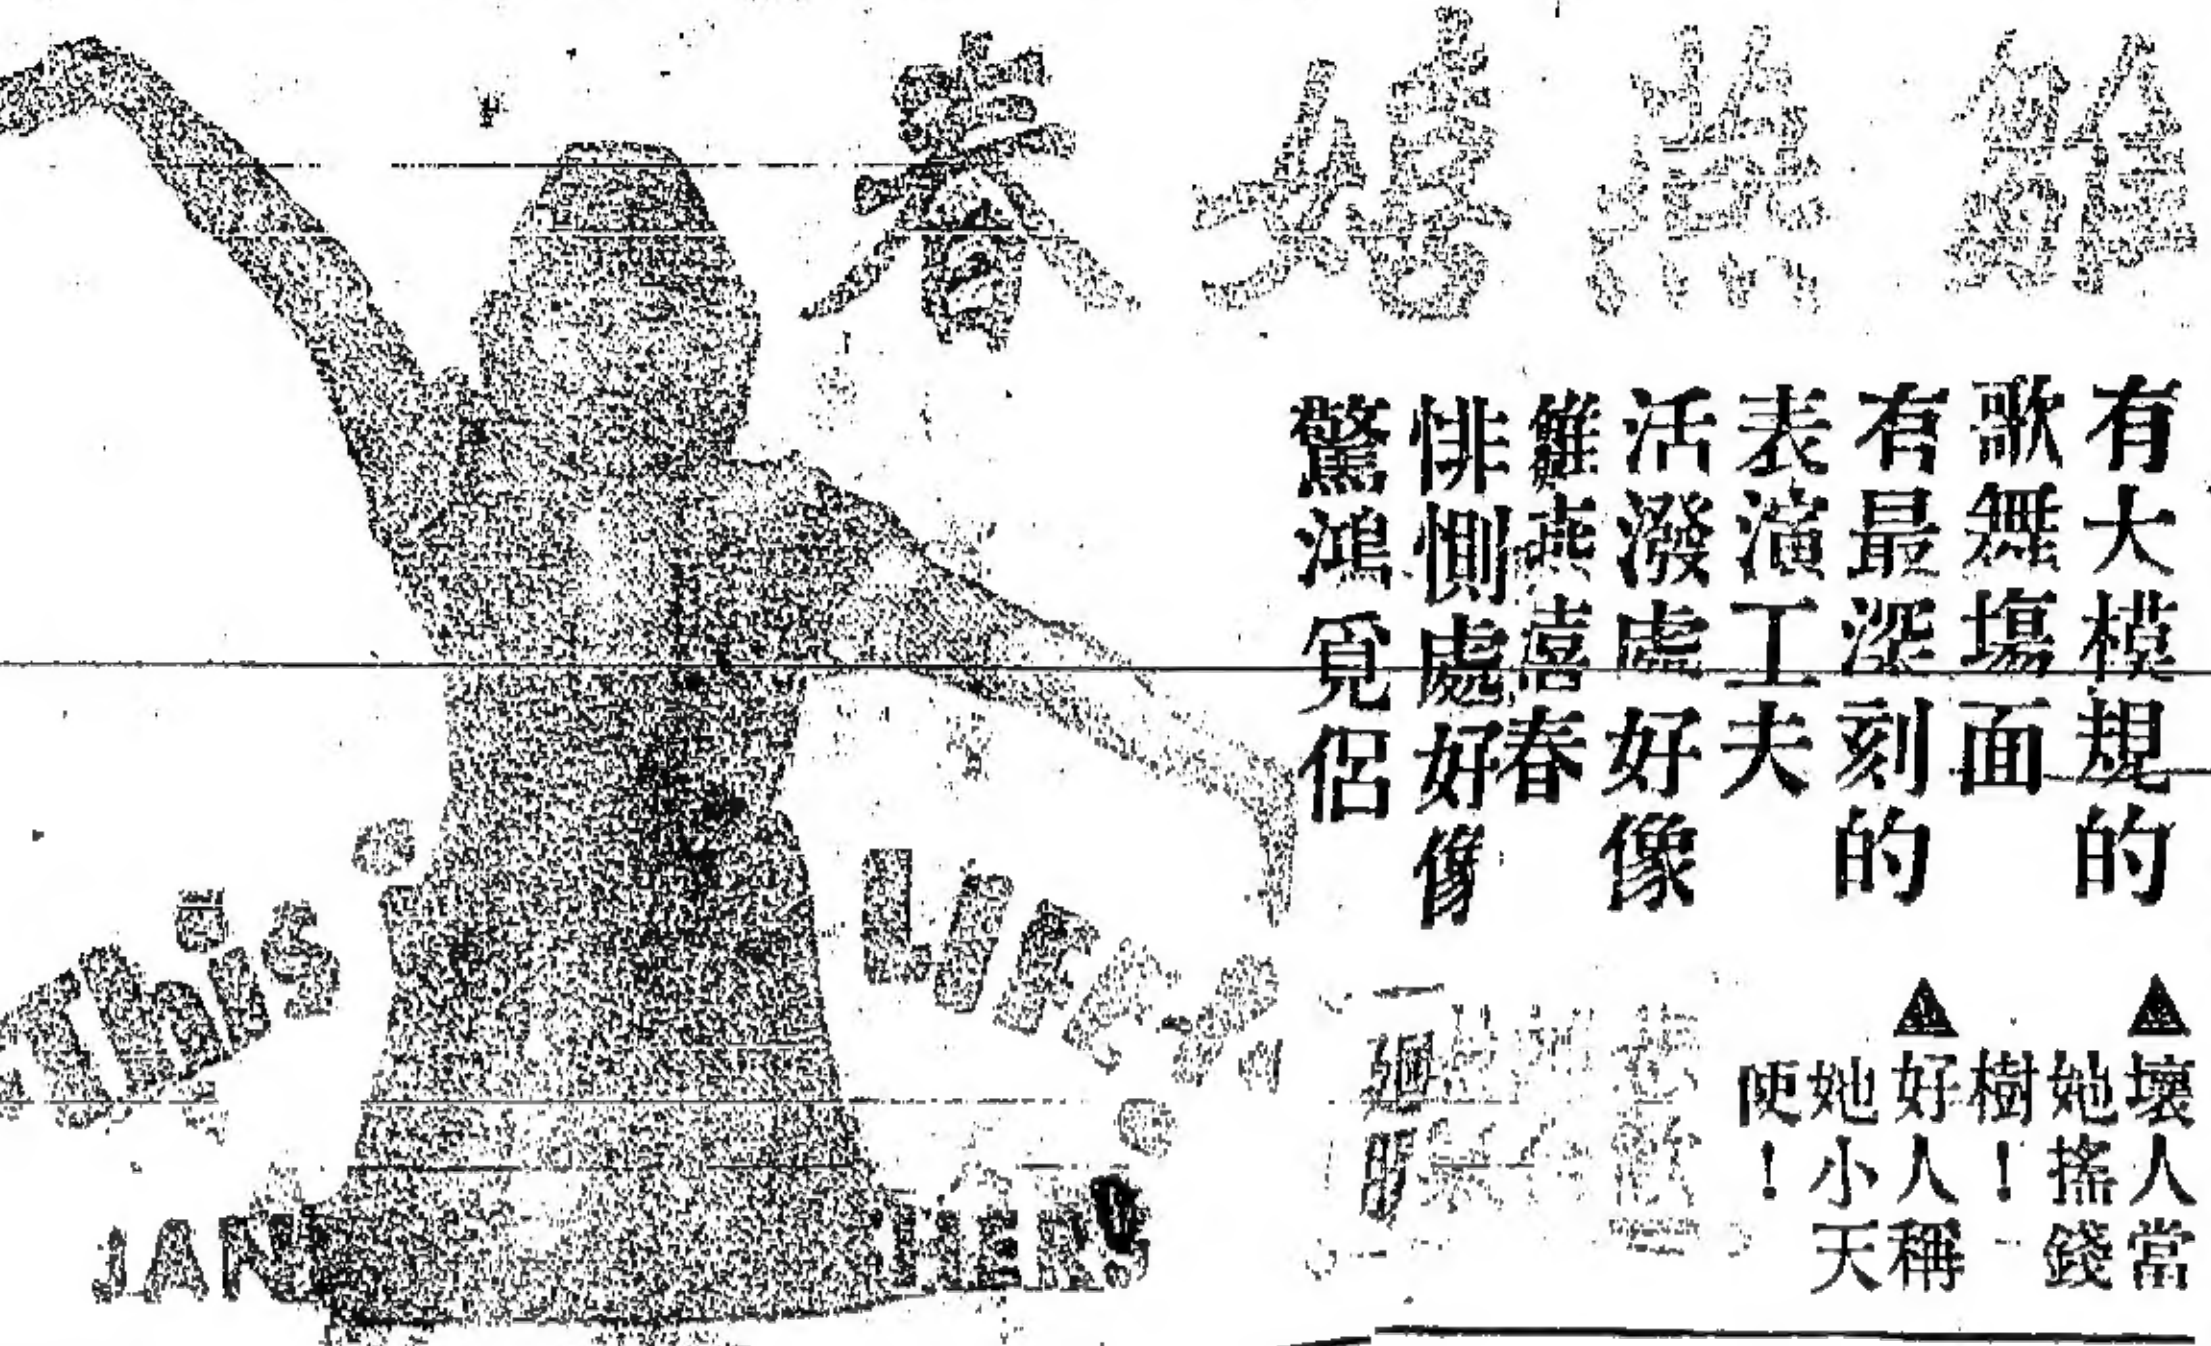 雛燕嬉春
有大模規的
歌舞場面
有最深刻的
表演工夫
活潑處好像
雛燕喜春
悱惻處好像
驚鴻覓侶
▲壞人當
她搖錢
樹！
▲好人稱
她小天
使！
This is
LIFE
JANE